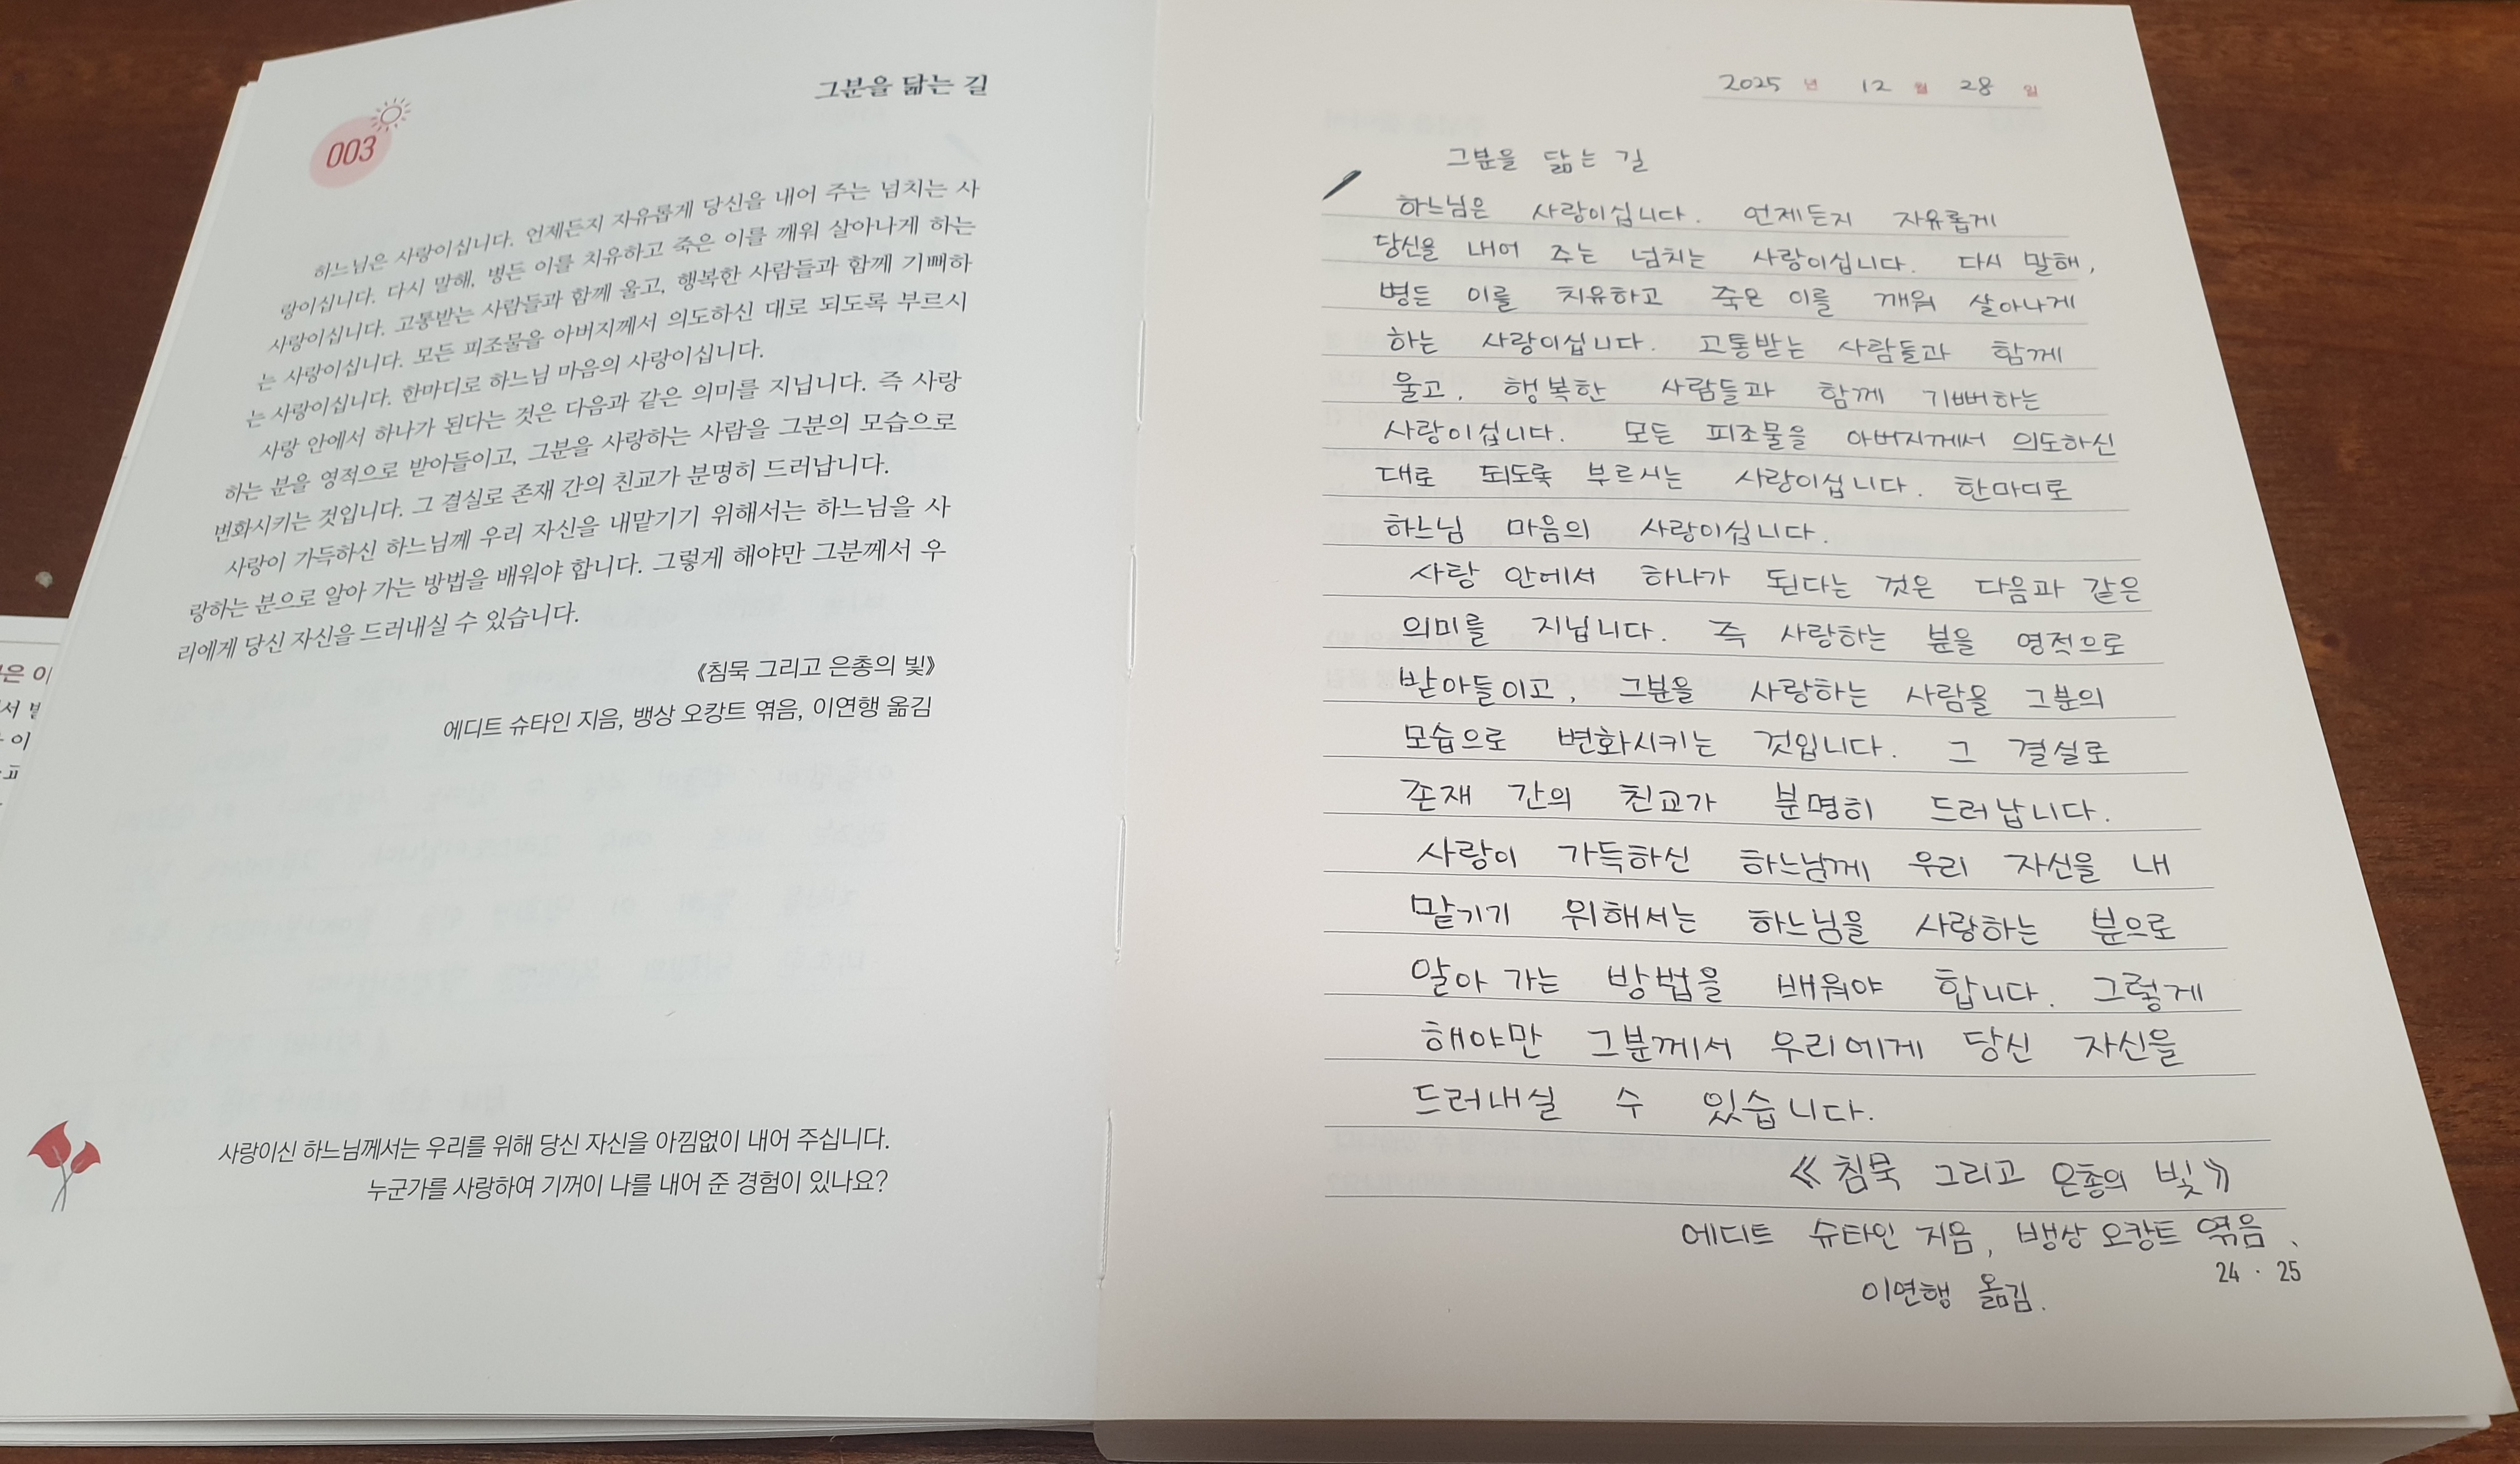 그분을 닮는 길
003
하느님은 사랑이십니다. 언제든지 자유롭게 당신을 내어 주는 넘치는 사
랑이십니다. 다시 말해, 병든 이를 치유하고 죽은 이를 깨워 살아나게 하는
사랑이십니다. 고통받는 사람들과 함께 울고, 행복한 사람들과 함께 기뻐하
는 사랑이십니다. 모든 피조물을 아버지께서 의도하신 대로 되도록 부르시
는 사랑이십니다. 한마디로 하느님 마음의 사랑이십니다.
사랑 안에서 하나가 된다는 것은 다음과 같은 의미를 지닙니다. 즉 사랑
하는 분을 영적으로 받아들이고, 그분을 사랑하는 사람을 그분의 모습으로
변화시키는 것입니다. 그 결실로 존재 간의 친교가 분명히 드러납니다.
사랑이 가득하신 하느님께 우리 자신을 내맡기기 위해서는 하느님을 사
랑하는 분으로 알아 가는 방법을 배워야 합니다. 그렇게 해야만 그분께서 우
리에게 당신 자신을 드러내실 수 있습니다.
《침묵 그리고 은총의 빛》
에디트 슈타인 지음, 뱅상 오캉트 엮음, 이연행 옮김
사랑이신 하느님께서는 우리를 위해 당신 자신을 아낌없이 내어 주십니다.
누군가를 사랑하여 기꺼이 나를 내어 준 경험이 있나요?
2025 년 12 월 28 일
그분을 닮는 길
하느님은 사랑이십니다. 언제든지 자유롭게
당신을 내어 주는 넘치는 사랑이십니다. 다시 말해,
병든 이를 치유하고 죽은 이를 깨워 살아나게
하는 사랑이십니다. 고통받는 사람들과 함께
울고, 행복한 사람들과 함께 기뻐하는
사랑이십니다. 모든 피조물을 아버지께서 의도하신
대로 되도록 부르시는 사랑이십니다. 한마디로
하느님 마음의 사랑이십니다.
사랑 안에서 하나가 된다는 것은 다음과 같은
의미를 지닙니다. 즉 사랑하는 분을 영적으로
받아들이고, 그분을 사랑하는 사람을 그분의
모습으로 변화시키는 것입니다. 그 결실로
존재 간의 친교가 분명히 드러납니다.
사랑이 가득하신 하느님께 우리 자신을 내
맡기기 위해서는 하느님을 사랑하는 분으로
알아 가는 방법을 배워야 합니다. 그렇게
해야만 그분께서 우리에게 당신 자신을
드러내실 수 있습니다.
《침묵 그리고 은총의 빛》
에디트 슈타인 지음, 뱅상 오캉트 엮음,
이연행 옮김.
24 · 25